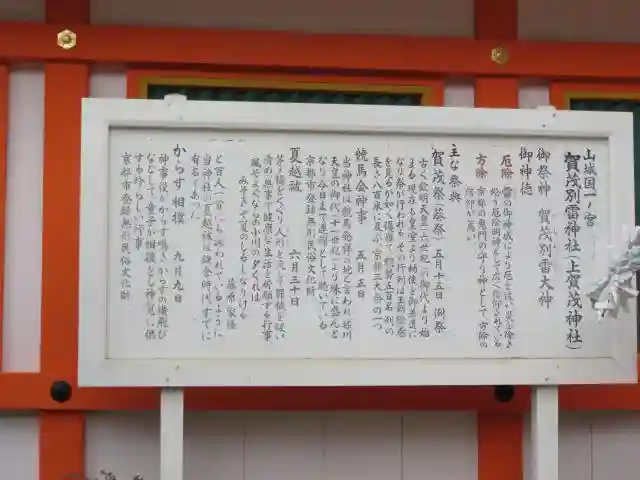 山城国一ノ宮
賀茂別雷神社(上賀茂神社)
御祭神 賀茂別雷大神
御神徳
厄除 雷の御神威により厄を祓い災を除き
給う厄除明神として広く信仰されている
方除 京都の鬼門の守り神として方除の
信仰が篤い
主な祭典
賀茂祭(葵祭) 五月十五日 例祭
古く欽明天皇(六世紀)の御代より始
まる現在も皇室より勅使を御差遣に
なり祭が行われる その行列は王朝絵巻
を見るが如く優雅で総勢五百名列の
長さ八百米に及ぶ 京都三大祭の一つ
競馬会神事 五月五日
当神社は競馬発祥の地と言われ堀川
天皇の御代(十一世紀)より殊に盛んと
なり今日まで連綿として続いている
京都市登録無形民俗文化財
夏越祓 六月三十日
茅の輪をくぐり人形を流して罪穢を祓い
清め無事で健康な生活を祈願する行事
風そよぐなら小川の夕ぐれは
みそぎぞ夏のしるしなりける
藤原家隆
と百人一首にも詠われているように
当神社の夏越祓は鎌倉時代すでに
有名であった
からす相撲 九月九日
神事役がからすの鳴きがらすの横飛び
などして童子が相撲をとし神覧に供
する珍らしい行事
京都市登録無形民俗文化財